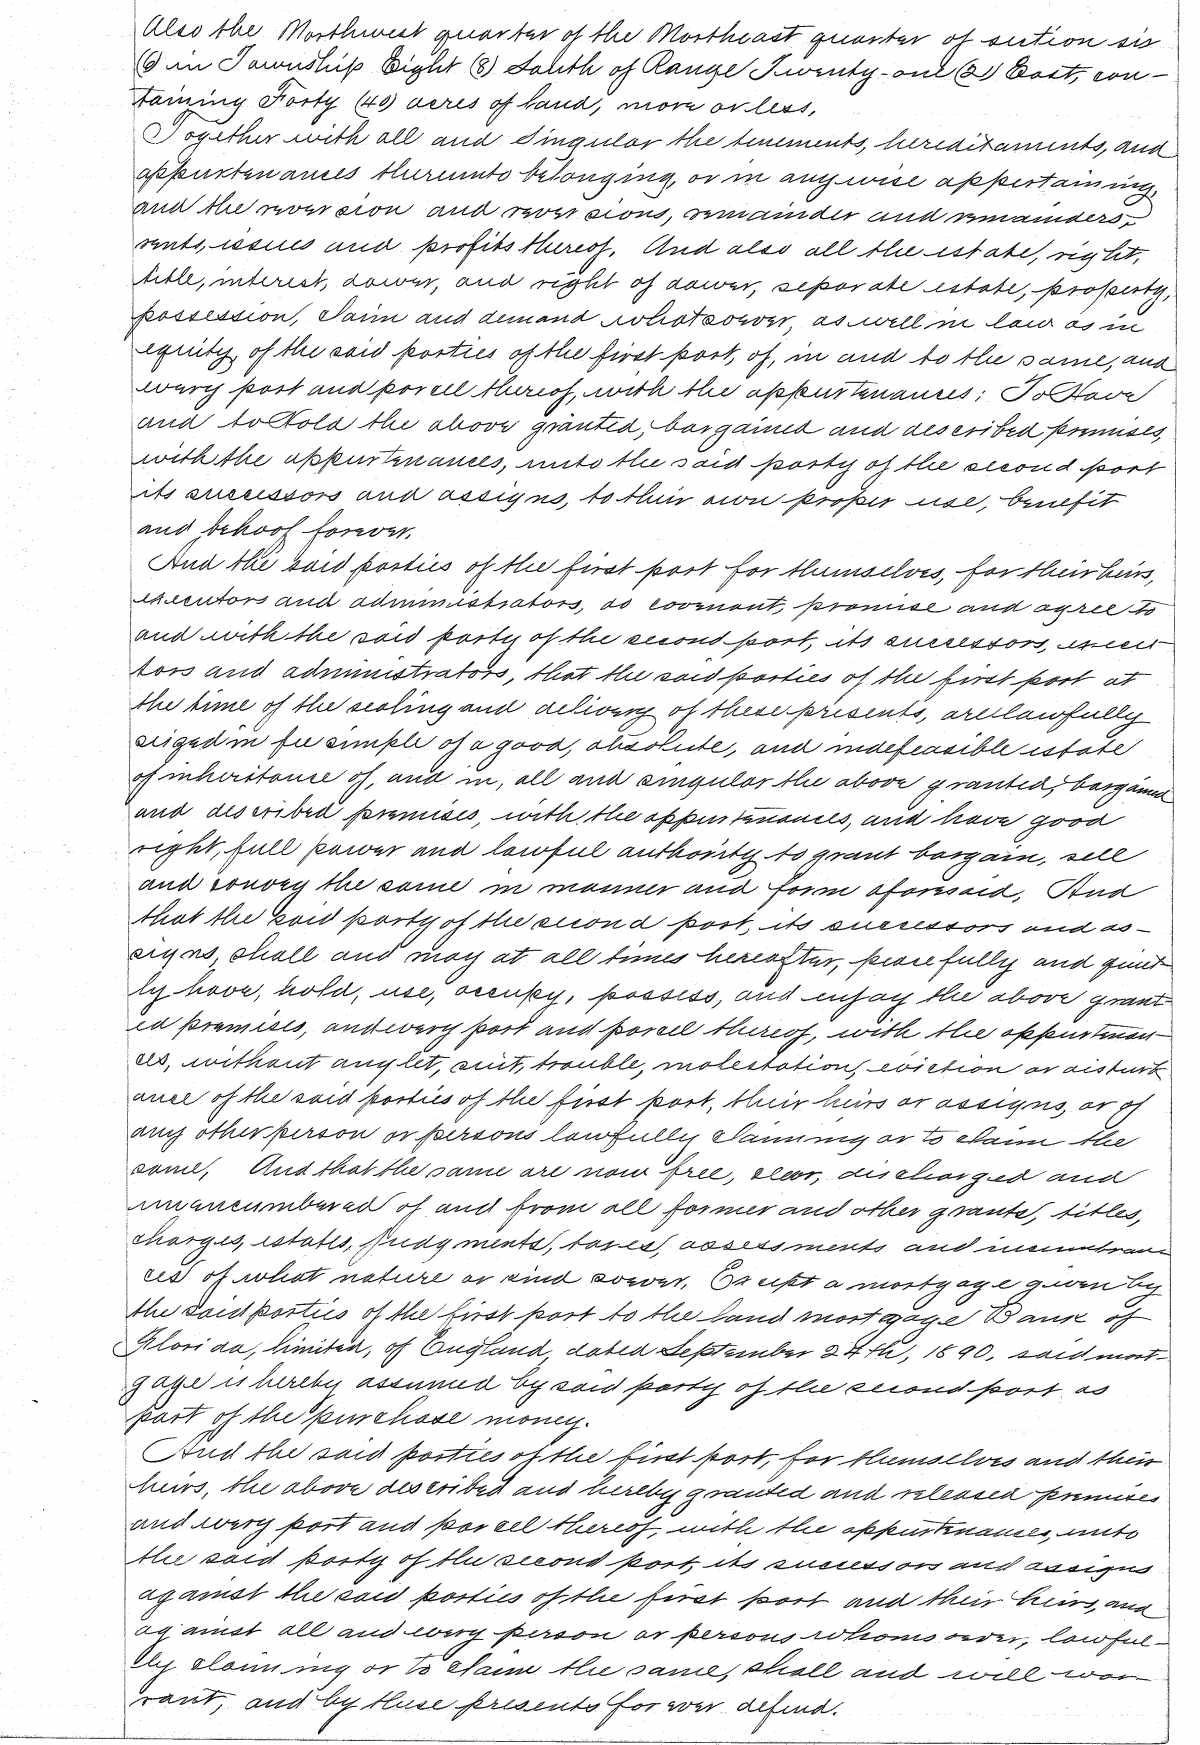 Also the Northwest quarter of the Northeast quarter of section six
(6) in Township Eight (8) South of Range Twenty-one (21) East, con-
taining Forty (40) acres of land, more or less,
Together with all and singular the tenements, hereditaments, and
appurtenances thereunto belonging, or in anywise appertaining,
and the reversion and reversions, remainder and remainders,
rents, issues and profits thereof. And also all the estate, right,
title, interest, dower, and right of dower, separate estate, property,
possession, claim and demand whatsoever, as well in law as in
equity, of the said parties of the first part, of, in and to the same, and
every part and parcel thereof, with the appurtenances: To Have
and to Hold the above granted, bargained and described premises,
with the appurtenances, unto the said party of the second part
its successors and assigns, to their own proper use, benefit
and behoof forever.
And the said parties of the first part for themselves, for their heirs,
executors and administrators, do covenant, promise and agree to
and with the said party of the second part, its successors, execu
tors and administrators, that the said parties of the first part at
the time of the sealing and delivery of these presents, are lawfully
seized in fee simple of a good, absolute, and indefeasible estate
of inheritance of, and in, all and singular the above granted, bargained
and described premises, with the appurtenances, and have good
right, full power and lawful authority to grant bargain, sell
and convey the same in manner and form aforesaid, And
that the said party of the second part, its successors and as-
signs, shall and may at all times hereafter, peacefully and quiet
ly have, hold, use, occupy, possess, and enjoy the above grant-
ed premises, and every part and parcel thereof, with the appurtenan-
ces, without any let, suit, trouble, molestation, eviction or disturb
ance of the said parties of the first part, their heirs or assigns, or of
any other person or persons lawfully claiming or to claim the
same, And that the same are now free, clear, discharged and
unencumbered of and from all former and other grants, titles,
charges, estates, judgments, taxes, assessments and incumbran
ces of what nature or kind soever, Except a mortgage given by
the said parties of the first part to the land mortgage Bank of
Florida, limited, of England, dated September 24th, 1890, said mort-
gage is hereby assumed by said party of the second part as
part of the purchase money.
And the said parties of the first part, for themselves and their
heirs, the above described and hereby granted and released premises
and every part and parcel thereof, with the appurtenances, unto
the said party of the second part, its successors and assigns
against the said parties of the first part and their heirs, and
against all and every person or persons whomsoever, lawful-
ly claiming or to claim the same, shall and will war-
rant, and by these presents forever defend.